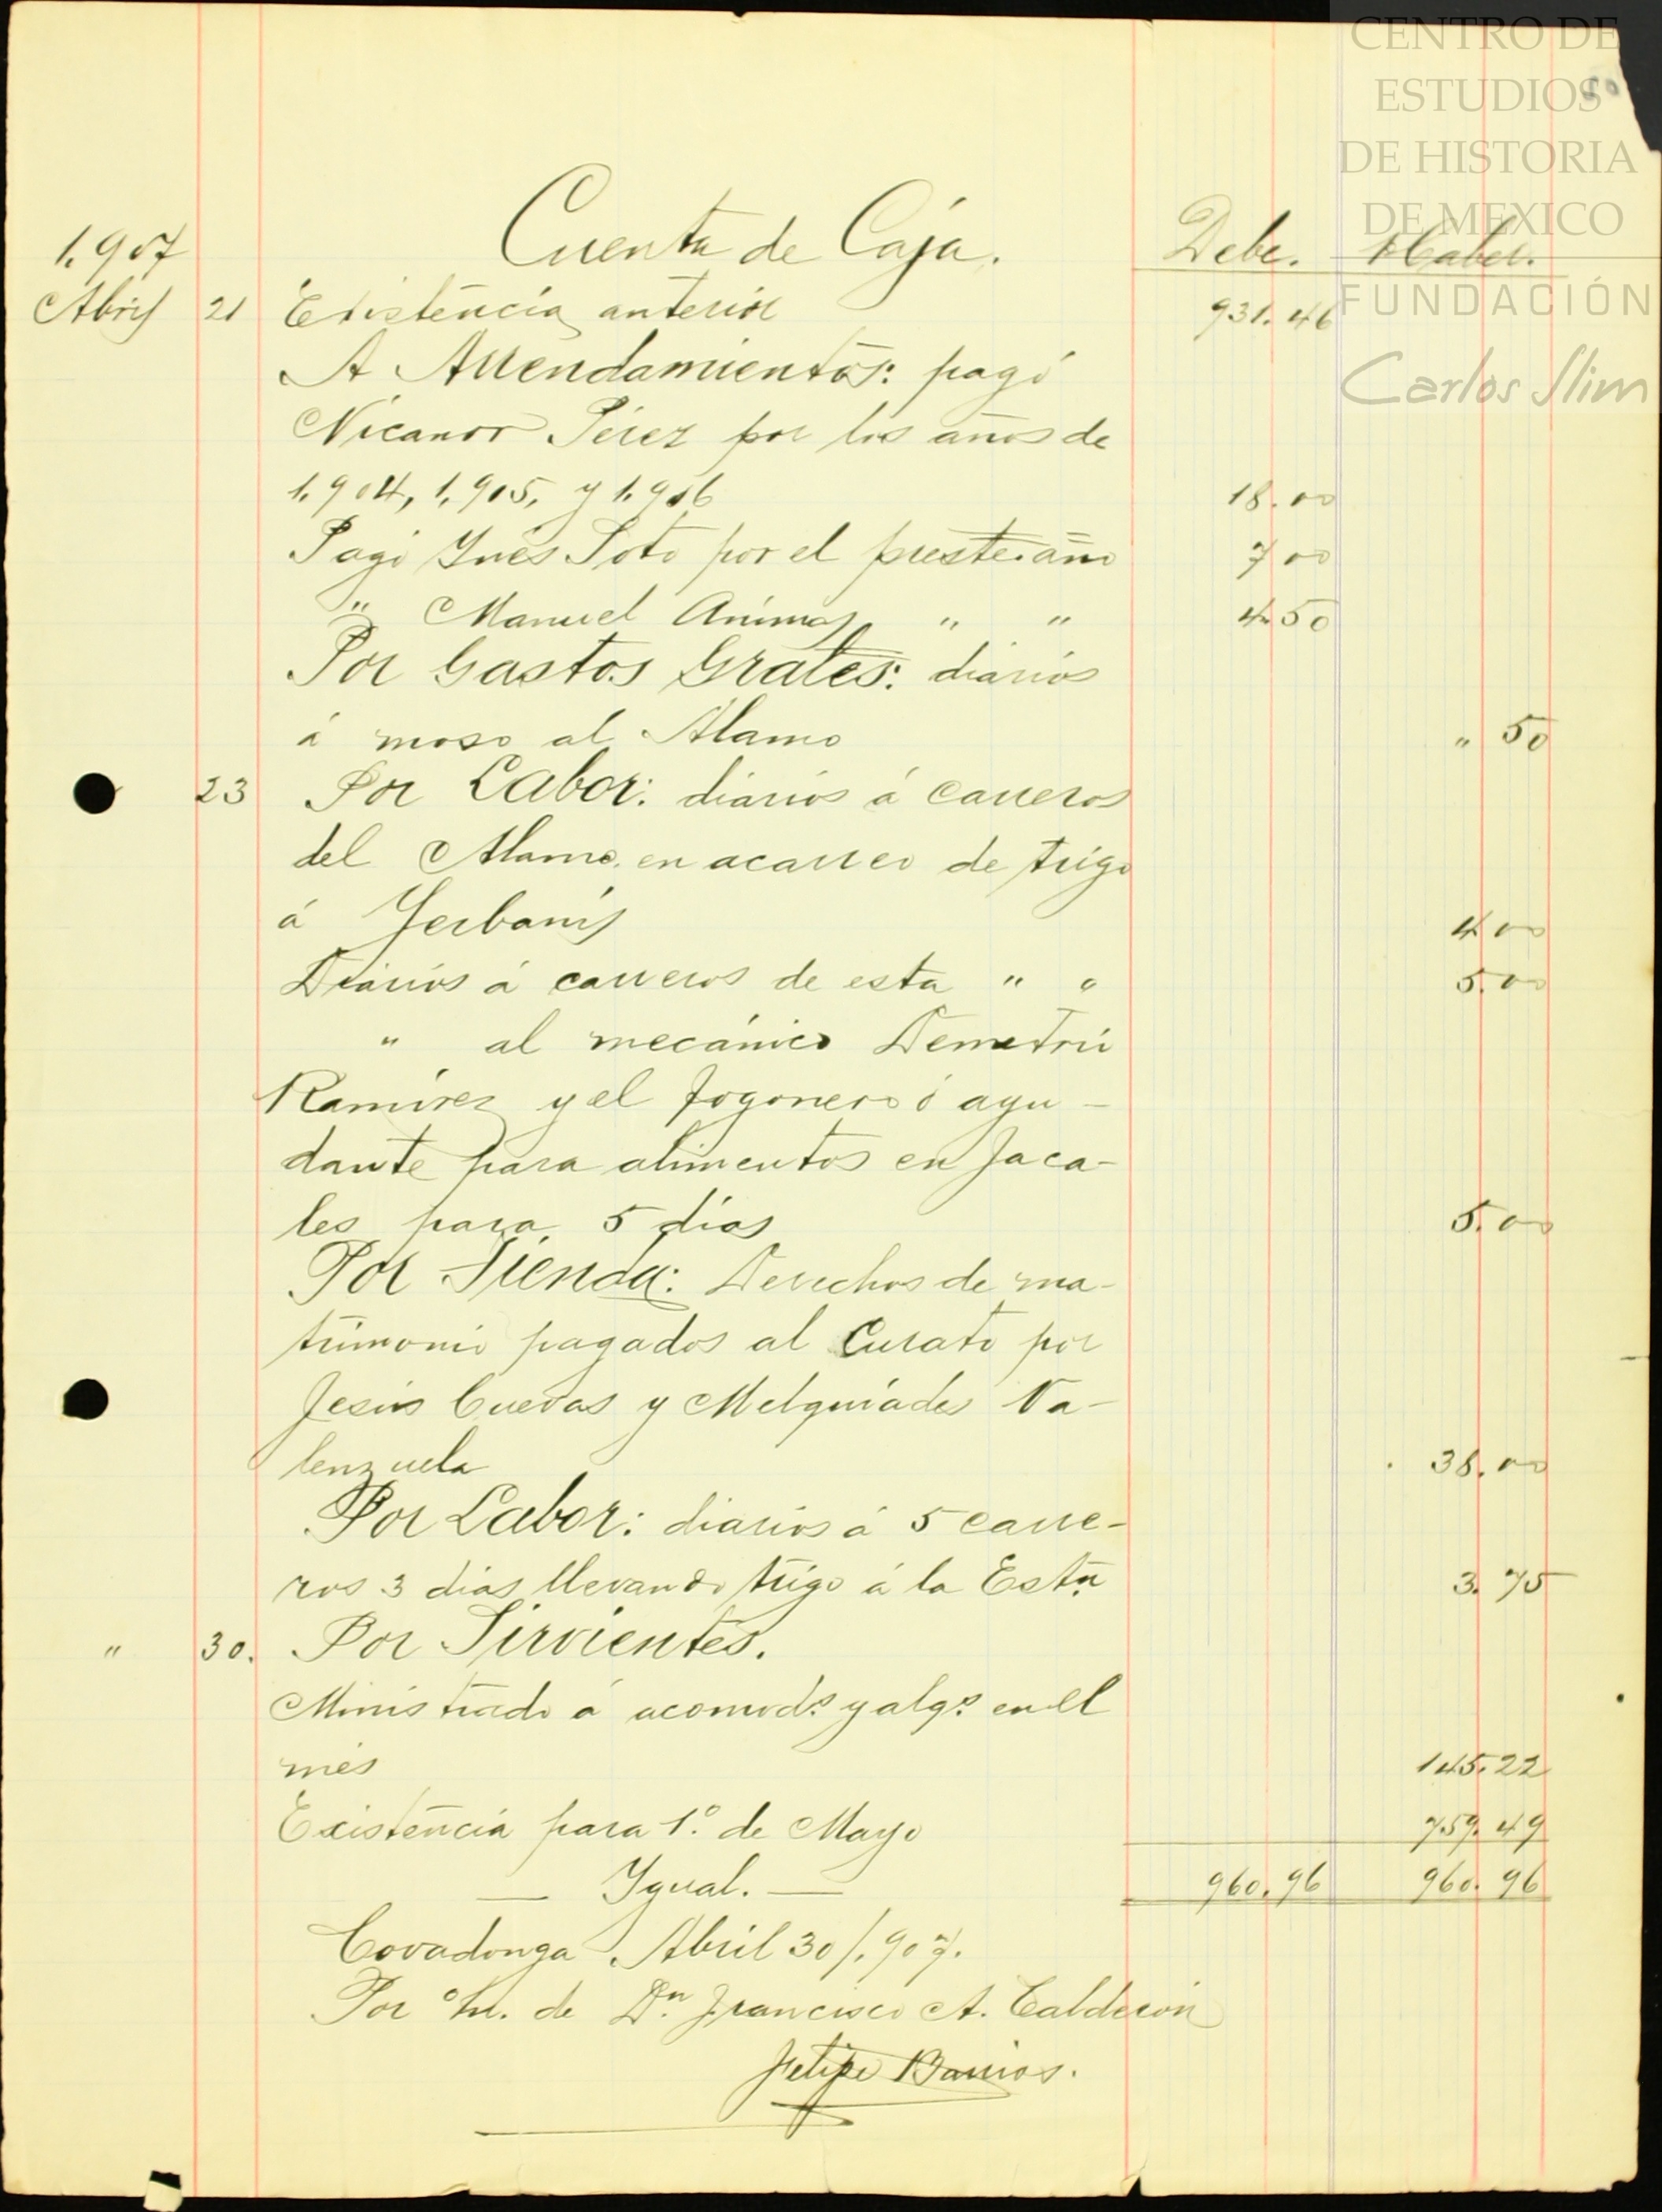 CENTRO DE
ESTUDIOS
DE HISTORIA
DE MEXICO
FUNDACIÓN
Carlos Slim
Cuenta de Caja. Debe. Haber.
1.907
Abril 21 Existencia anterior 931.46
A Arrendamientos: pagó
Nicanor Pérez por los años de
1.904, 1.905, y 1.906 18.00
Pagó Ynés Soto por el preste. año 7 00
" Manuel Animas " " 4 50
Por Gastos Grales: diarios
á moso al Alamo " 50
23 Por Labor: diarios á carreros
del Alamo en acarreo de trigo
á Yerbanís 4 00
Diarios á carreros de esta " " 5.00
" al mecánico Demetrio
Ramírez y el fogonero ó ayu-
dante para alimentos en Jaca-
les para 5 días 5.00
Por Tienda: Derechos de ma-
trimonio pagados al Curato por
Jesús Cuevas y Melquíades Va-
lenzuela 38.00
Por Labor: diarios á 5 carre-
ros 3 días llevando trigo á la Estn. 3.75
" 30. Por Sirvientes.
Ministrado á acomods. y algs. en el
més 145.22
Existencia para 1º. de Mayo 759.49
— Ygual. — 960.96 960.96
Covadonga Abril 30/.907.
Por o/n. de Dn. Francisco A. Calderón
Felipe Barrios.